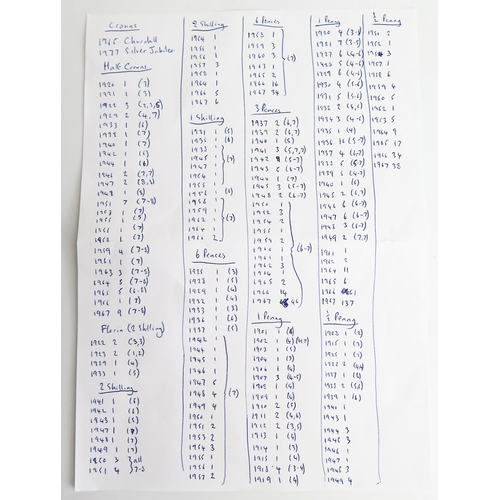 Crowns
1965 Churchill
1977 Silver Jubilee
Half Crowns
1920 1 (3)
1921 1 (3)
1922 3
1929 2 (4,7)
1933 1 (6)
1938 1 (7)
1940 1 (7)
1942 1 (6)
1944 1
1946 2 (7,7)
1947 2
1948 1
1951 7 (7-8)
1953 1 (7)
1955 1
1956 1
1958 1
1959 4 (7-8)
1961 1 (7)
1963 3 (7-8)
1964 5 (7-8)
1965 5
1966 1
1967 9 (7-8)
Florin (2 Shilling)
1922 2 (3,3)
1923 2 (1,2)
1929 1 (4)
1933 1 (5)
2 Shilling
1941 1 (6)
1942 1 (6)
1943 1 (5)
1947 1
1948 1 (7)
1949 1 (7)
1950 3 all
1951 4 7-8
2 Shilling
1954 1
1955 1
1956 1
1957 3
1962 1
1964 1
1966 5
1967 6
1 Shilling
1931 1 (5)
1935 1
1938 1
1945 1
1947 1
1954 1
1955 1
1956 1
1959 1
1962 1
1964 1
1966 1
6 Pences
1925 1 (3)
1928 1 (5)
1929 1 (4)
1932 1 (4)
1933 1 (3)
1936 1 (6)
1937 1 (5)
1942 1
1944 1
1945 1
1946 1
1947 6
1948 4 (7)
1949 4
1950 1
1951 2
1953 2
1954 3
1955 1
1956 1
1957 2
6 Pences
1958 1
1959 3
1960 3 (7)
1963 1
1965 2
1966 16
1967 34
3 Pences
1937 2 (6,7)
1939 2 (6,7)
1940 1
1941 3 (5,7,7)
1942
1943 5 (6-7)
1944 1 (7)
1945 3 (5-7)
1948 2 (6-7)
1950 1
1952 3
1953 2
1954 1
1959 2
1960 1 (6-7)
1961 1
1962 3
1964 1
1965 2
1966 14
1967 46
1 Penny
1901 1
1902 4
1903 1 (5)
1904 1 (3)
1906 1 (4)
1907 3 (4-5)
1908 1 (4)
1909 1 (4)
1910 2 (5)
1911 2 (4,6)
1912 2 (3,5)
1913 1 (4)
1914 1 (4)
1916 1 (4)
1918 4 (3-4)
1919 1 (4)
1 Penny
1920 4
1921 7 (3-5)
1922 4
1927 5 (4-6)
1929 6 (4-6)
1930 4 (5-6)
1931 5
1932 2
1934 3 (4-5)
1935 1 (4)
1936 10 (5-7)
1937 4 (6,7)
1938 5
1939 5 (6-7)
1940 1 (6)
1945 2 (6,7)
1946 6 (6-7)
1947 6 (6-7)
1948 3 (6-7)
1949 2 (7,7)
1961 1
1962 2
1964 11
1965 6
1966 61
1967 137
½ Penny
1902 1 (3)
1915 1 (3)
1923 1 (5)
1926 2
1927 1
1928 2
1939 1
1940 1
1943 1
1944 3
1945 3
1946 1
1947 1
1948 3
1949 4
½ Penny
1951 2
1952 1
1954 3
1957 1
1958 6
1959 4
1960 5
1962 1
1963 5
1964 9
1965 17
1966 34
1967 38